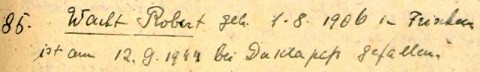 85. Wacht Robert geb. 1.8.1906 in
ist am 12.9.1944 bei Duklapaß gefallen.